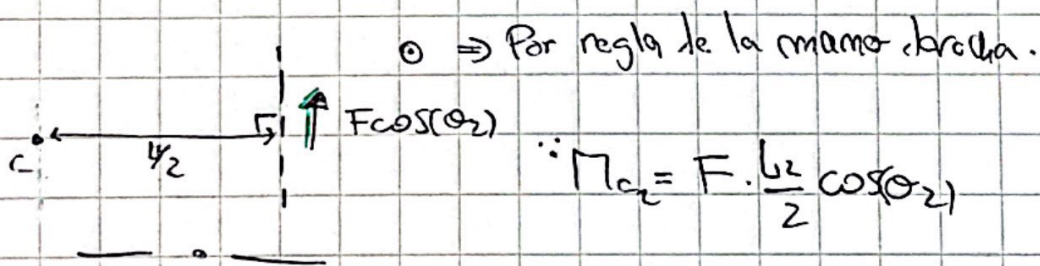 ⊙ ⇒ Por regla de la mano derecha.
Fcos(θ₂)
C
L/2
∵ M_c₂ = F · L₂/2 cos(θ₂)